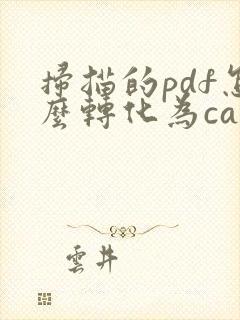 掃描的pdf怎
麼轉化為ca
雲井